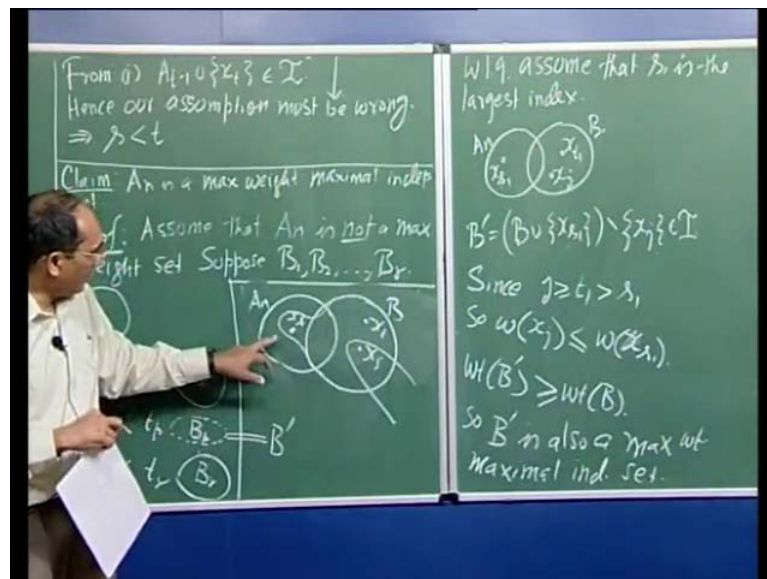 From i) A_{t-1} ∪ {x_t} ∈ I
Hence our assumption must be wrong.
⇒ s < t
Claim: A_n is a max weight maximal indep
f: Assume that A_n is not a max
eight set Suppose B_1, B_2, ..., B_r.
A_n
B
x_j
t_p B_k = B'
t_r B_r
W/g. assume that s_1 is the
largest index.
A_n
B
x_{s_1}
x_{t_1}
x_j
B' = (B ∪ {x_{s_1}}) \ {x_j} ∈ I
Since j ≥ t_1 > s_1
So w(x_j) ≤ w(x_{s_1}).
wt(B') ≥ wt(B).
So B' is also a max wt
maximal ind. set.